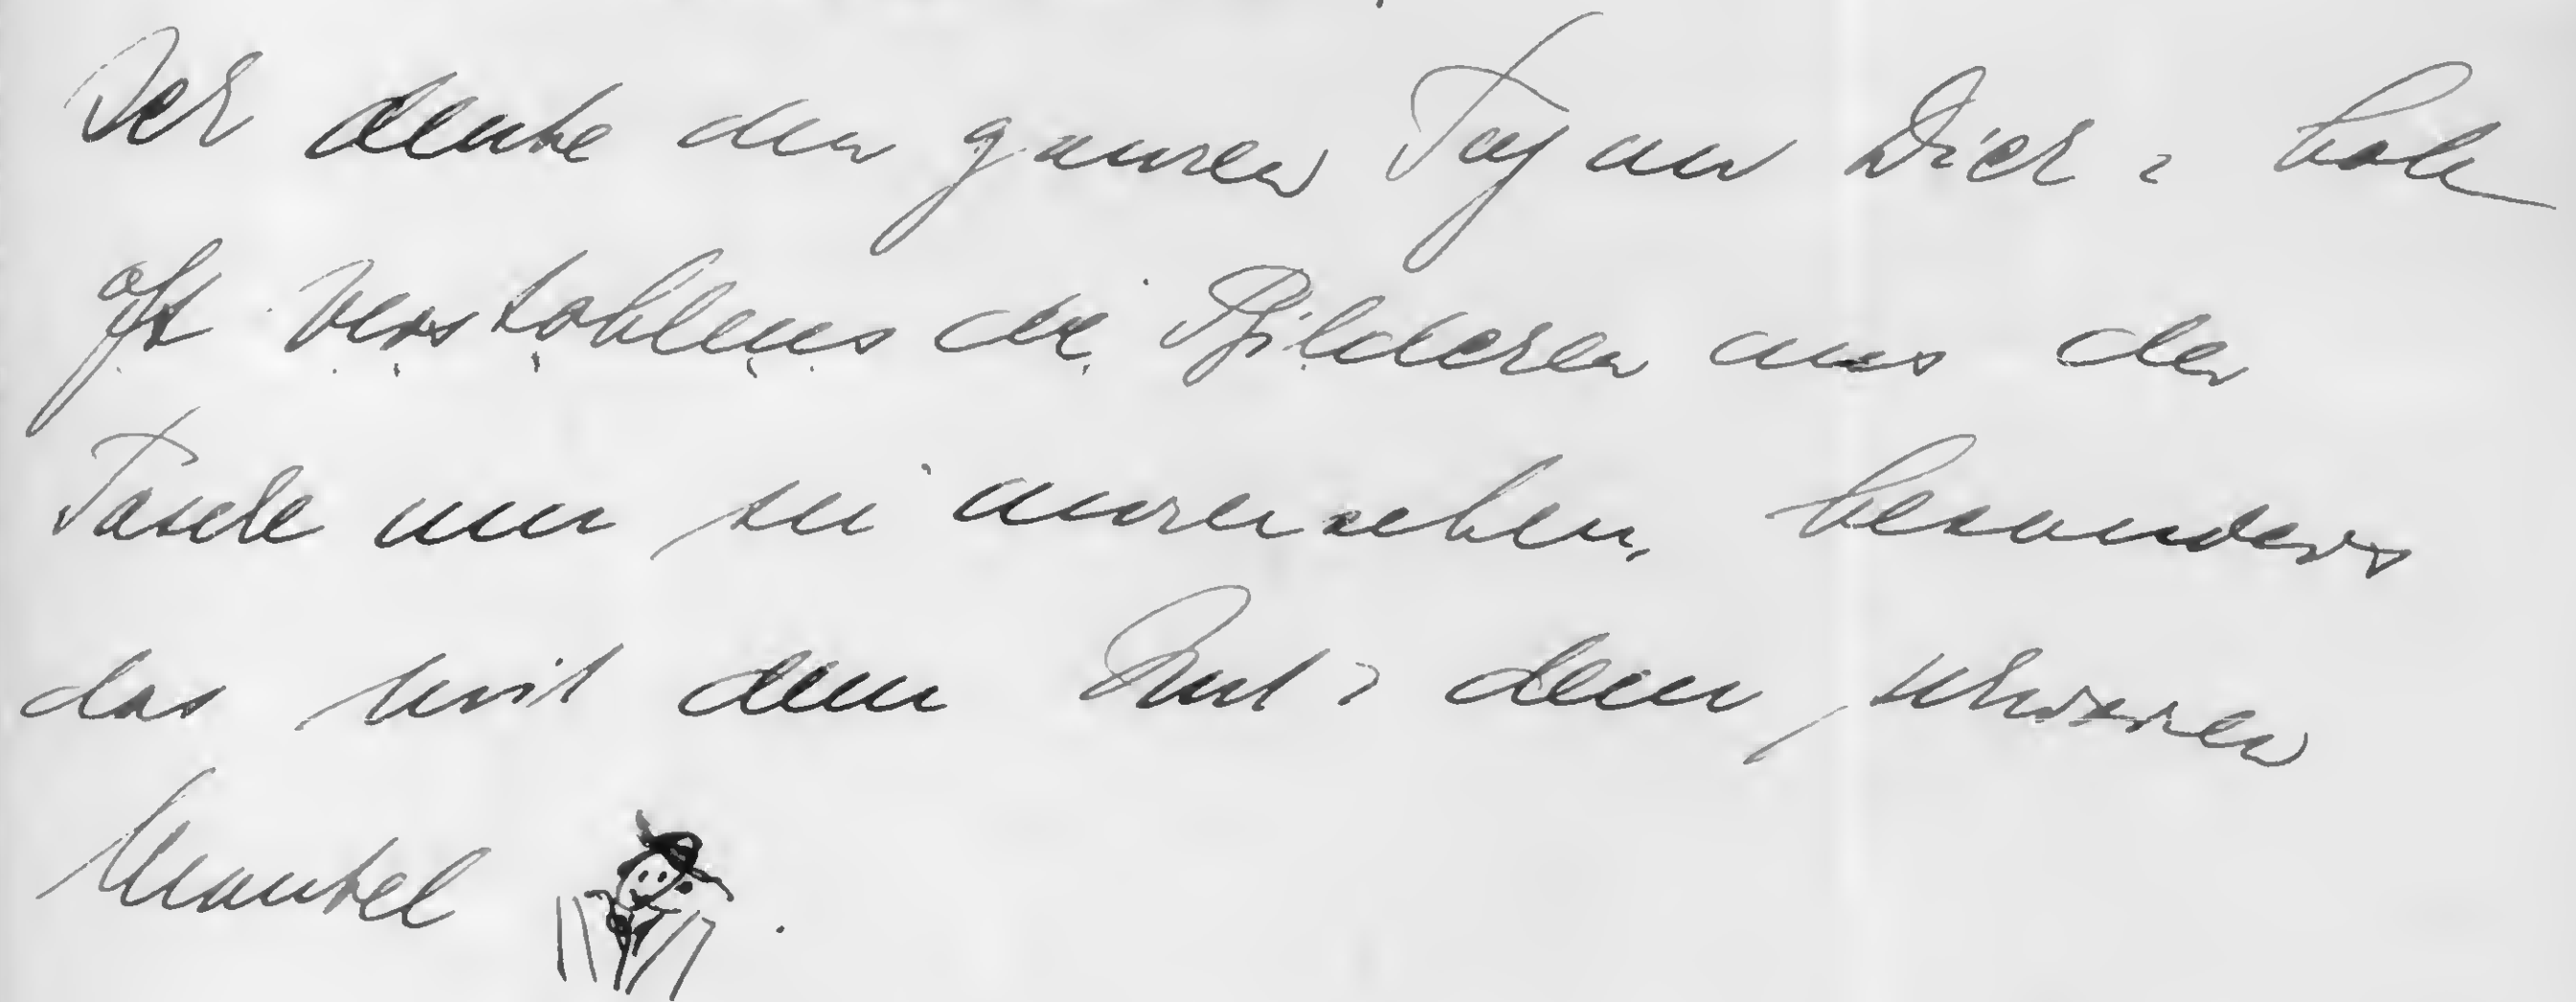 Ich denke den ganzen Tag an Dich & hole
oft verstohlens die Bilderen aus der
Tasche um sie anzusehen, besonders
das mit dem Hut & dem schwarzen
Mantel .